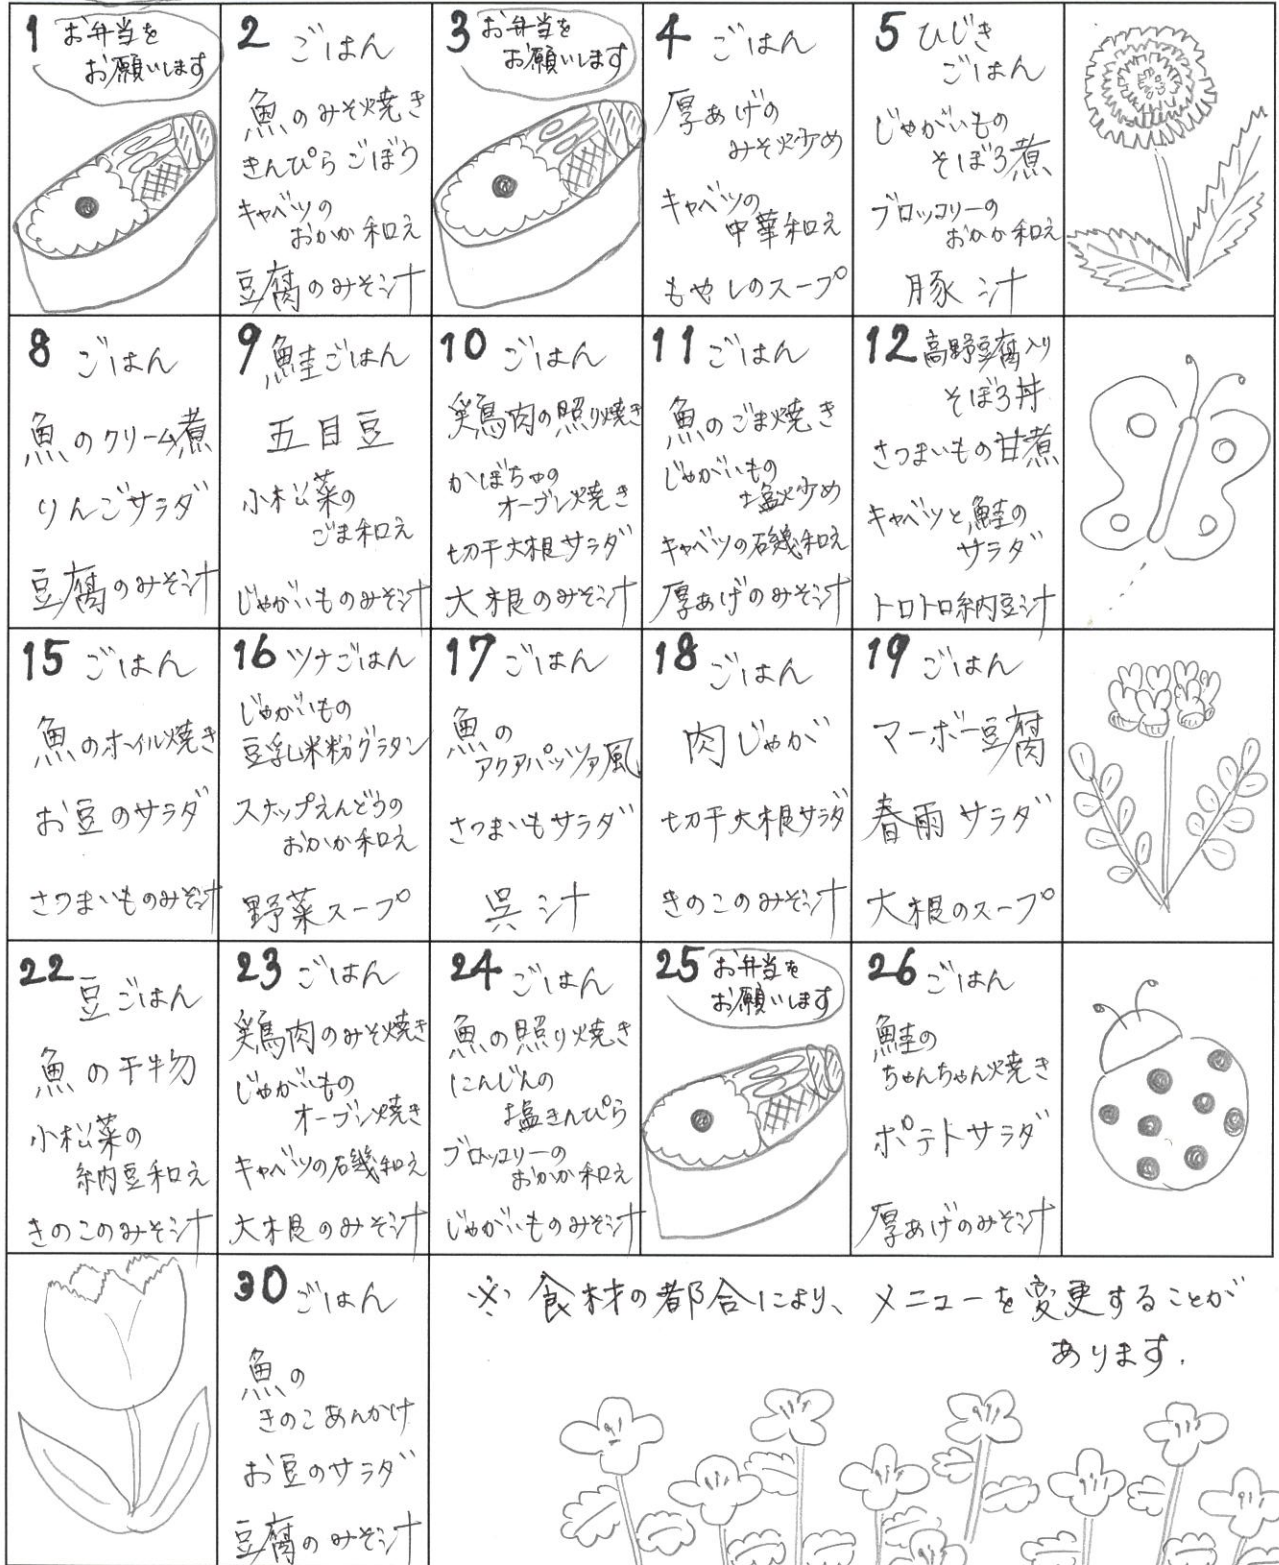 1 お弁当を
お願いします
2 ごはん
魚のみそ焼き
きんぴらごぼう
キャベツの
おかか和え
豆腐のみそ汁
3 お弁当を
お願いします
4 ごはん
厚あげの
みそ炒め
キャベツの
中華和え
もやしのスープ
5 ひじき
ごはん
じゃがいもの
そぼろ煮
ブロッコリーの
おかか和え
豚汁
8 ごはん
魚のクリーム煮
りんごサラダ
豆腐のみそ汁
9 鮭ごはん
五目豆
小松菜の
ごま和え
じゃがいものみそ汁
10 ごはん
鶏肉の照り焼き
かぼちゃの
オーブン焼き
切干大根サラダ
大根のみそ汁
11 ごはん
魚のごま焼き
じゃがいもの
塩炒め
キャベツの磯和え
厚あげのみそ汁
12 高野豆腐入り
そぼろ丼
さつまいもの甘煮
キャベツと鮭の
サラダ
トロトロ納豆汁
15 ごはん
魚のホイル焼き
お豆のサラダ
さつまいものみそ汁
16 ツナごはん
じゃがいもの
豆乳米粉グラタン
スナップえんどうの
おかか和え
野菜スープ
17 ごはん
魚の
アクアパッツァ風
さつまいもサラダ
呉汁
18 ごはん
肉じゃが
切干大根サラダ
きのこのみそ汁
19 ごはん
マーボー豆腐
春雨サラダ
大根のスープ
22 豆ごはん
魚の干物
小松菜の
納豆和え
きのこのみそ汁
23 ごはん
鶏肉のみそ焼き
じゃがいもの
オーブン焼き
キャベツの磯和え
大根のみそ汁
24 ごはん
魚の照り焼き
にんじんの
塩きんぴら
ブロッコリーの
おかか和え
じゃがいものみそ汁
25 お弁当を
お願いします
26 ごはん
鮭の
ちゃんちゃん焼き
ポテトサラダ
厚あげのみそ汁
30 ごはん
魚の
きのこあんかけ
お豆のサラダ
豆腐のみそ汁
※ 食材の都合により、メニューを変更することが
あります.